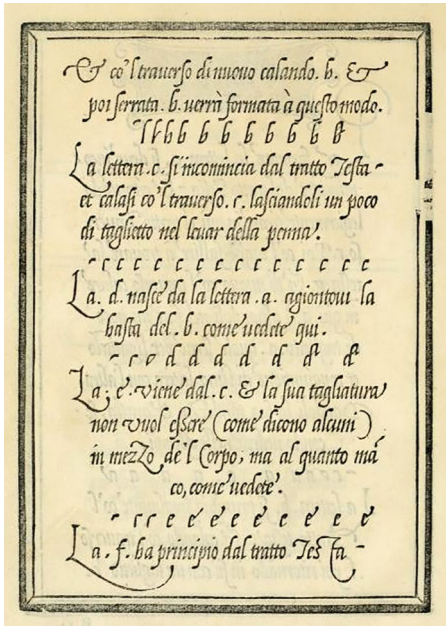 & co'l trauerso di nuouo calando. b. &
poi serrata. b. verrà formata à questo modo.
ſ l b b b b b b b b b b b
La lettera .c. si incomincia dal tratto Testa-
et calasi co'l trauerso. c. lasciandoli un poco
di taglietto nel leuar della penna.
- r c c c c c c c c c c c
La .d. nasce da la lettera .a. agiontoui la
hasta del .b. come uedete qui.
- c o d d d d d d d
La .e. viene dal .c. & la sua tagliatura
non vuol essere (come dicono alcuni)
in mezZo de'l Corpo, ma al quanto mā
co, come uedete.
- r c e e e e e e e e
La .f. ha principio dal tratto Testa-